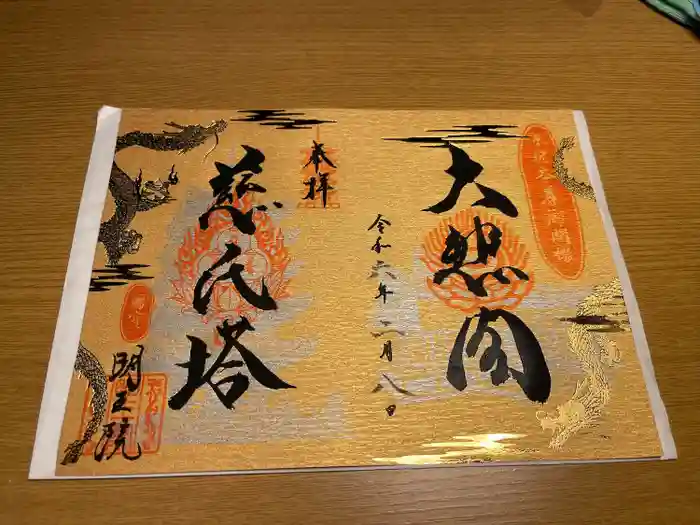 大悲閣
奉拝
令和六年二月八日
慈氏塔
明王院